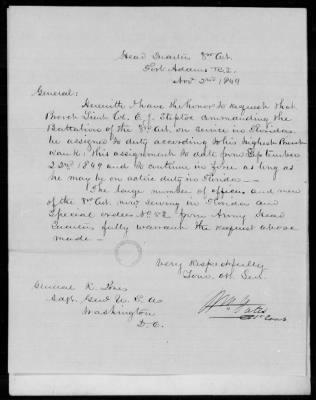 Head Quarters 3rd Art.
Fort Adams R.I.
Nov 2nd 1849
General:
Herewith I have the honor to request that
Brevet Lieut Col. E. J. Steptoe commanding the
Battalion of the 3rd Art. on service in Florida
be assigned to duty according to his highest Brevet
rank; this assignment to date from September
22nd 1849 and to continue in force as long as
he may be on active duty in Florida —
The large number of officers and men
of the 3rd Art. now serving in Florida and
Special orders No. 52 from Army Head
Quarters fully warrant the request above
made —
Very Respectfully
Your Ob. Svt.
General R. Jones
Adjt. Genl U. S. A.
Washington
D. C.
Wm Gates